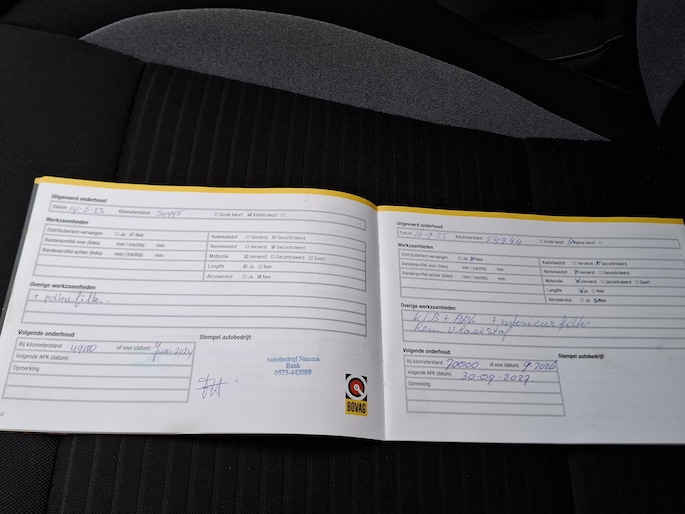 Uitgevoerd onderhoud
Datum 14-6-23 Kilometerstand 34445 Grote beurt Kleine beurt
Werkzaamheden
Distributieriem vervangen Ja Nee
Bandenprofiel voor (links) mm / (rechts) mm
Bandenprofiel achter (links) mm / (rechts) mm
Koelvloeistof Ververst Gecontroleerd
Remvloeistof Ververst Gecontroleerd
Motorolie Ververst Gecontroleerd Soort
Longlife Ja Nee
Aircoservice Ja Nee
Overige werkzaamheden
+ pollenfilter
Volgende onderhoud
Bij kilometerstand of voor (datum) Juni 2024
Volgende APK (datum)
Opmerking
Stempel autobedrijf:
Autobedrijf
Baak
0575-442089
BOVAG
Uitgevoerd onderhoud
Datum Kilometerstand 54944 Grote beurt Kleine beurt
Werkzaamheden
Distributieriem vervangen Ja Nee
Bandenprofiel voor (links) mm / (rechts) mm
Bandenprofiel achter (links) mm / (rechts) mm
Koelvloeistof Ververst Gecontroleerd
Remvloeistof Ververst Gecontroleerd
Motorolie Ververst Gecontroleerd Soort
Longlife Ja Nee
Aircoservice Ja Nee
Overige werkzaamheden
K.L.B + APK + interieurfilter
Rem vloeistof
Volgende onderhoud
Bij kilometerstand 70000 of voor (datum) 9-2026
Volgende APK (datum) 30-09-2027
Opmerking
Stempel autobedrijf: